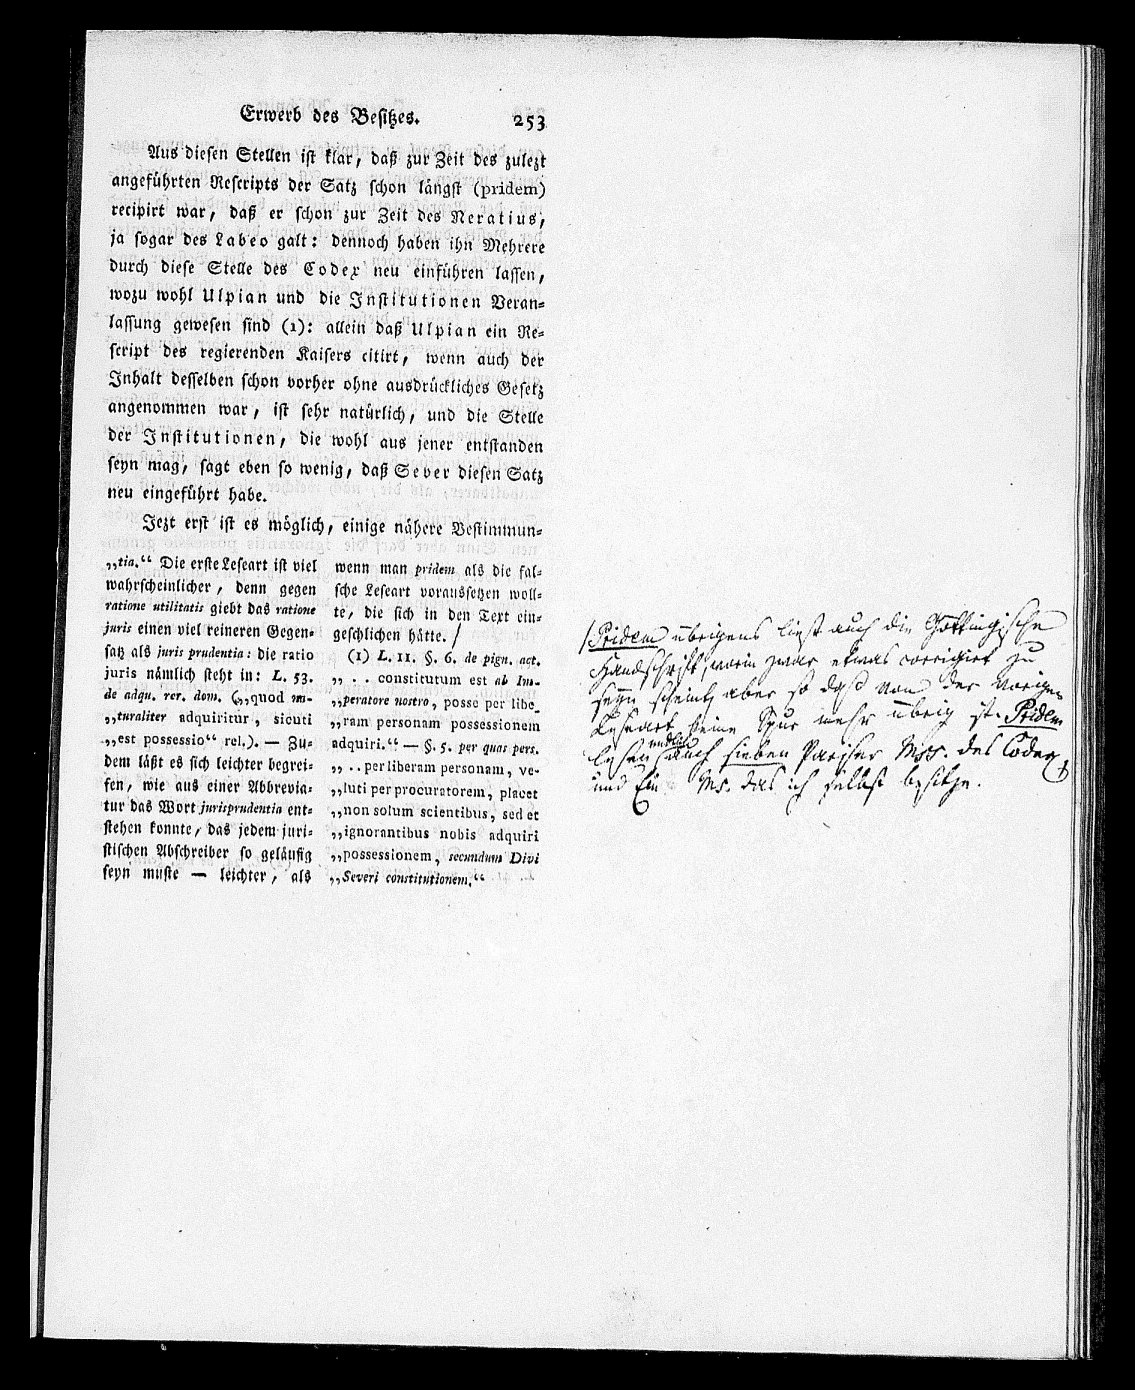 Erwerb des Besitzes. 253
Aus diesen Stellen ist klar, daß zur Zeit des zulezt
angeführten Rescripts der Satz schon längst (pridem)
recipirt war, daß er schon zur Zeit des Neratius,
ja sogar des Labeo galt: dennoch haben ihn Mehrere
durch diese Stelle des Codex neu einführen lassen,
wozu wohl Ulpian und die Institutionen Veran-
lassung gewesen sind (1): allein daß Ulpian ein Re-
script des regierenden Kaisers citirt, wenn auch der
Inhalt desselben schon vorher ohne ausdrückliches Gesetz
angenommen war, ist sehr natürlich, und die Stelle
der Institutionen, die wohl aus jener entstanden
seyn mag, sagt eben so wenig, daß Sever diesen Satz
neu eingeführt habe.
Jezt erst ist es möglich, einige nähere Bestimmun-
„tia.“ Die erste Leseart ist viel
wahrscheinlicher, denn gegen
ratione utilitatis giebt das ratione
juris einen viel reineren Gegen-
satz als juris prudentia: die ratio
juris nämlich steht in: L. 53.
de adqu. rer. dom. („quod na-
„turaliter adquiritur, sicuti
„est possessio“ rel.). — Zu-
dem läßt es sich leichter begrei-
fen, wie aus einer Abbrevia-
tur das Wort jurisprudentia ent-
stehen konnte, das jedem juri-
stischen Abschreiber so geläufig
seyn muste — leichter, als
wenn man pridem als die fal-
sche Leseart voraussetzen woll-
te, die sich in den Text ein-
geschlichen hätte. /
(1) L. 11. §. 6. de pign. act.
„ . . constitutum est ab Im-
„peratore nostro, posse per libe-
„ram personam possessionem
adquiri.“ — §. 5. per quas pers.
„ . . per liberam personam, ve-
„luti per procuratorem, placet
„non solum scientibus, sed et
„ignorantibus nobis adquiri
„possessionem, secundum Divi
„Severi constitutionem.“
/ Pridem übrigens liest auch die Göttingische
Handschrift, worin zwar etwas corrigirt zu
seyn scheint, aber so daß von der vorigen
Leseart keine Spur mehr übrig ist. Pridem
lesen endlich auch sieben Pariser Mss. des Codex,
und Ein Ms. das ich selbst besitze.